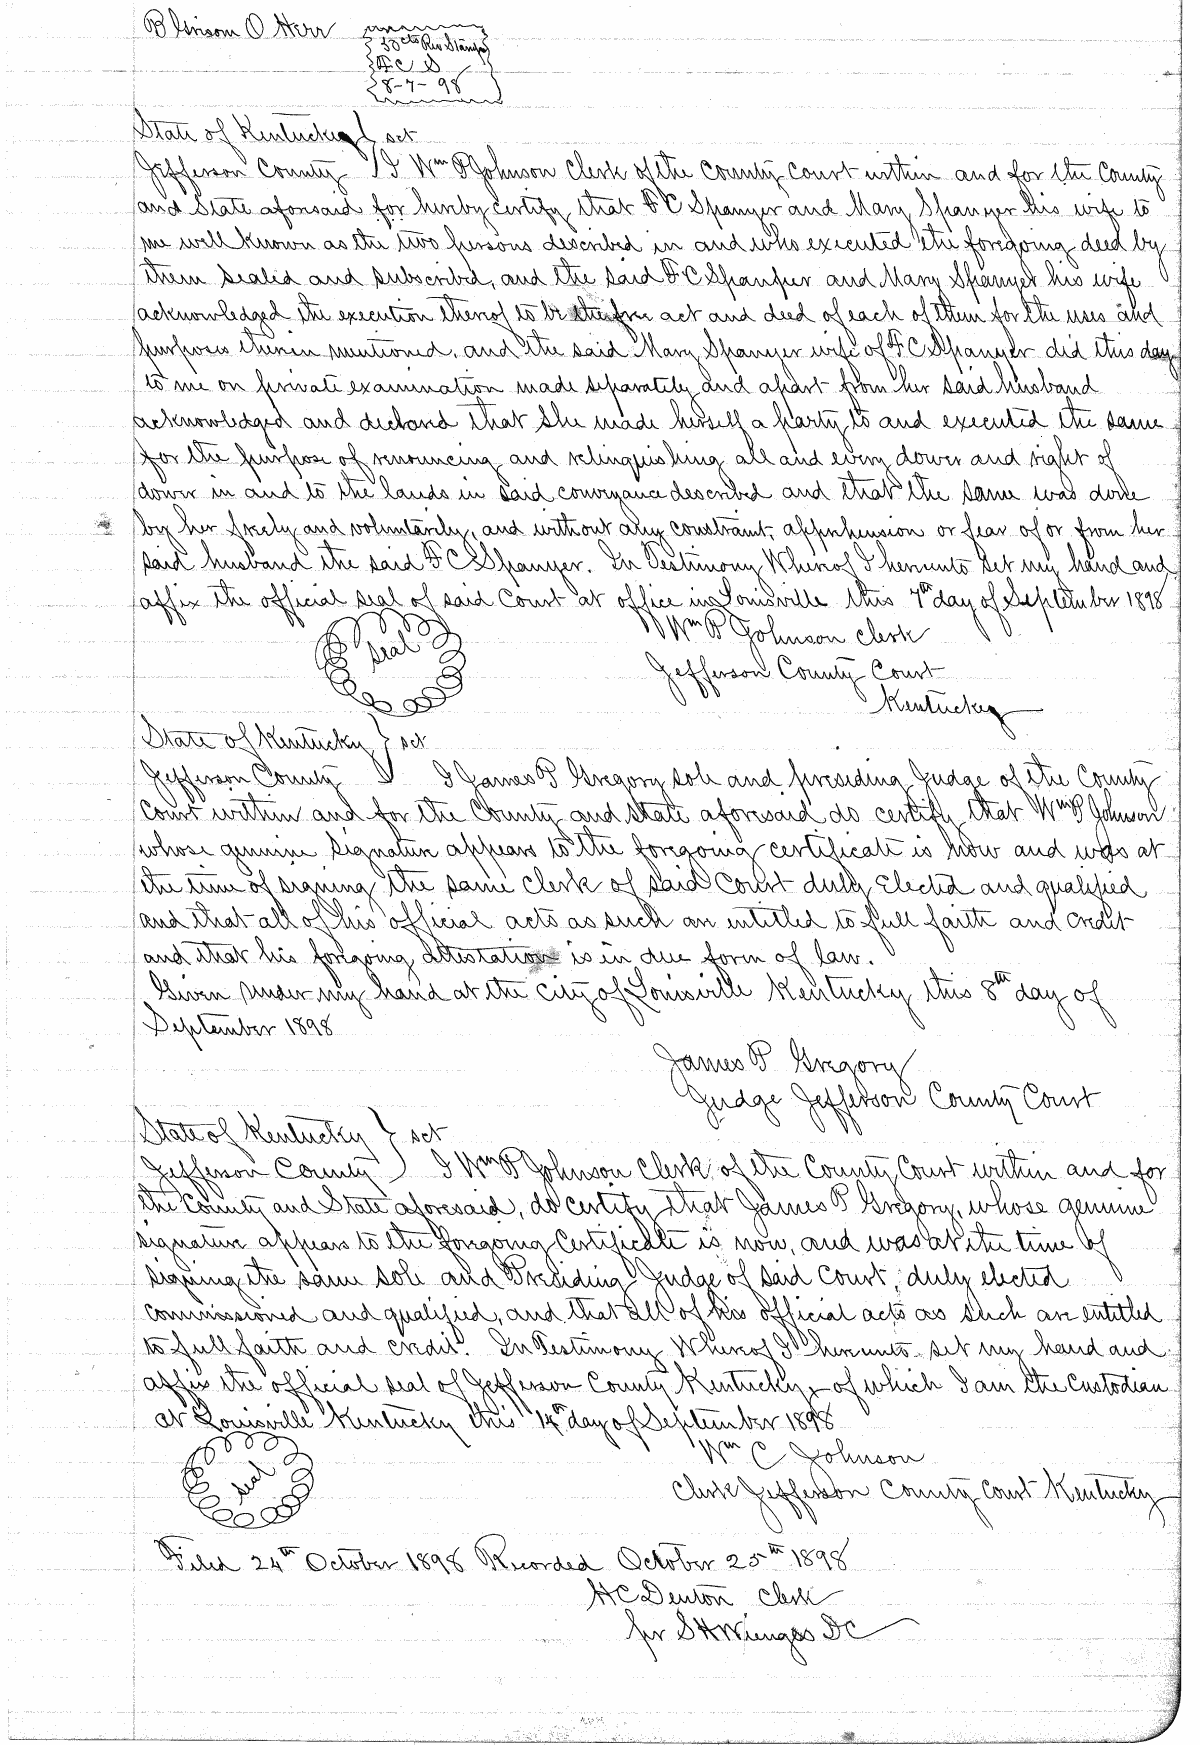 B Grisom O Herr
50cts Rev Stamps
F C S
8-7-98
State of Kentucky } sct
Jefferson County } I Wm P Johnson Clerk of the County Court within and for the County
and State aforesaid for hereby certify that F C Spanyer and Mary Spanyer his wife to
me well known as the two persons described in and who executed the foregoing deed by
them sealed and subscribed, and the said F C Spanyer and Mary Spanyer his wife
acknowledged the execution thereof to be the free act and deed of each of them for the uses and
purposes therein mentioned, and the said Mary Spanyer wife of F C Spanyer did this day
to me on private examination made separately and apart from her said husband
acknowledged and declared that she made herself a party to and executed the same
for the purpose of renouncing and relinquishing all and every dower and right of
dower in and to the lands in said conveyance described and that the same was done
by her freely and voluntarily, and without any constraint, apprehension or fear of or from her
said husband the said F C Spanyer. In Testimony Whereof I hereunto set my hand and
affix the official seal of said Court at office in Louisville this 7th day of September 1898
Seal
Wm P Johnson clerk
Jefferson County Court
Kentucky
State of Kentucky } sct
Jefferson County } I James P Gregory sole and presiding Judge of the County
Court within and for the County and State aforesaid do certify that Wm P Johnson
whose genuine signature appears to the foregoing certificate is now and was at
the time of signing the same clerk of said Court duly Elected and qualified
and that all of his official acts as such are entitled to full faith and credit
and that his foregoing attestation is in due form of law.
Given under my hand at the city of Louisville Kentucky this 8th day of
September 1898
James P Gregory
Judge Jefferson County Court
State of Kentucky } sct
Jefferson County } I Wm P Johnson Clerk of the County Court within and for
the County and State aforesaid, do certify that James P Gregory, whose genuine
signature appears to the foregoing Certificate is now, and was at the time of
signing the same sole and Presiding Judge of said Court, duly elected
commissioned and qualified, and that all of his official acts as such are entitled
to full faith and credit. In Testimony Whereof I hereunto set my hand and
affix the official seal of Jefferson County Kentucky, of which I am the Custodian
at Louisville Kentucky this 14th day of September 1898
Seal
Wm C Johnson
Clerk Jefferson County Court Kentucky
Filed 24th October 1898 Recorded October 25th 1898
H C Denton Clerk
per S H Wienges D C